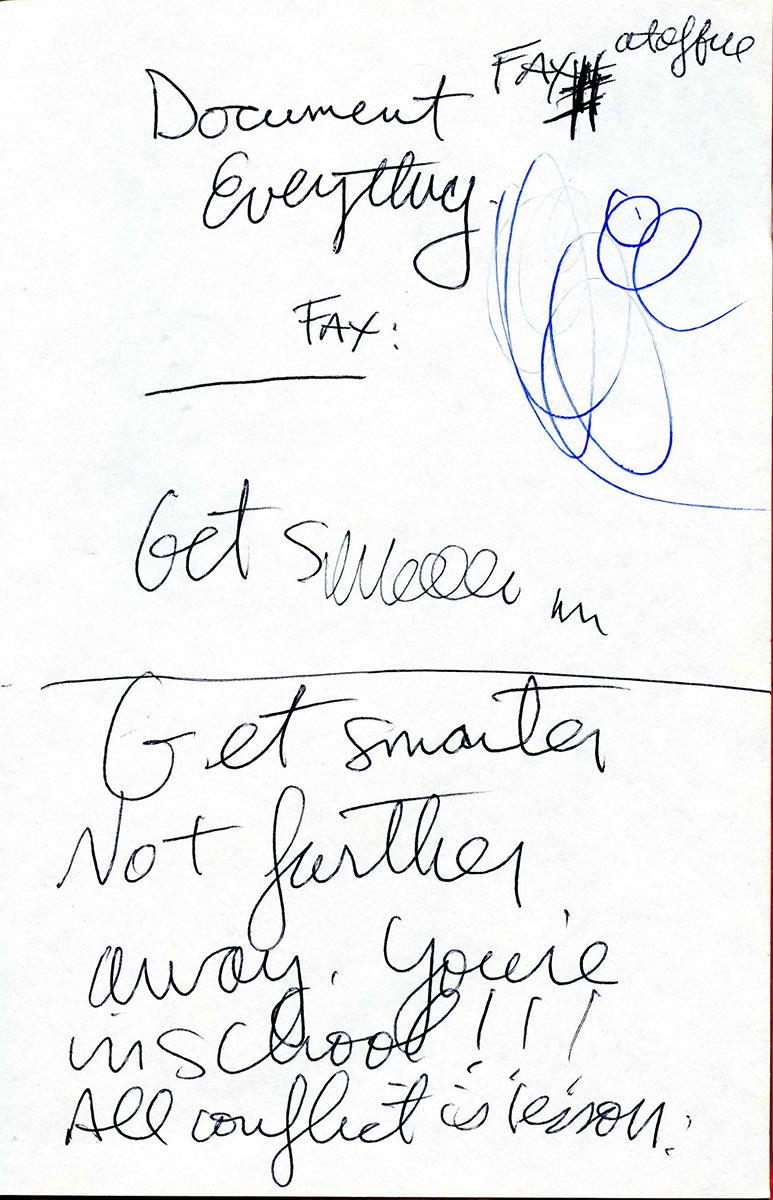 FAX # at office
Document
Everything.
FAX:
Get
Get smarter
Not further
away. You're
in school!!!
All conflict is lesson.